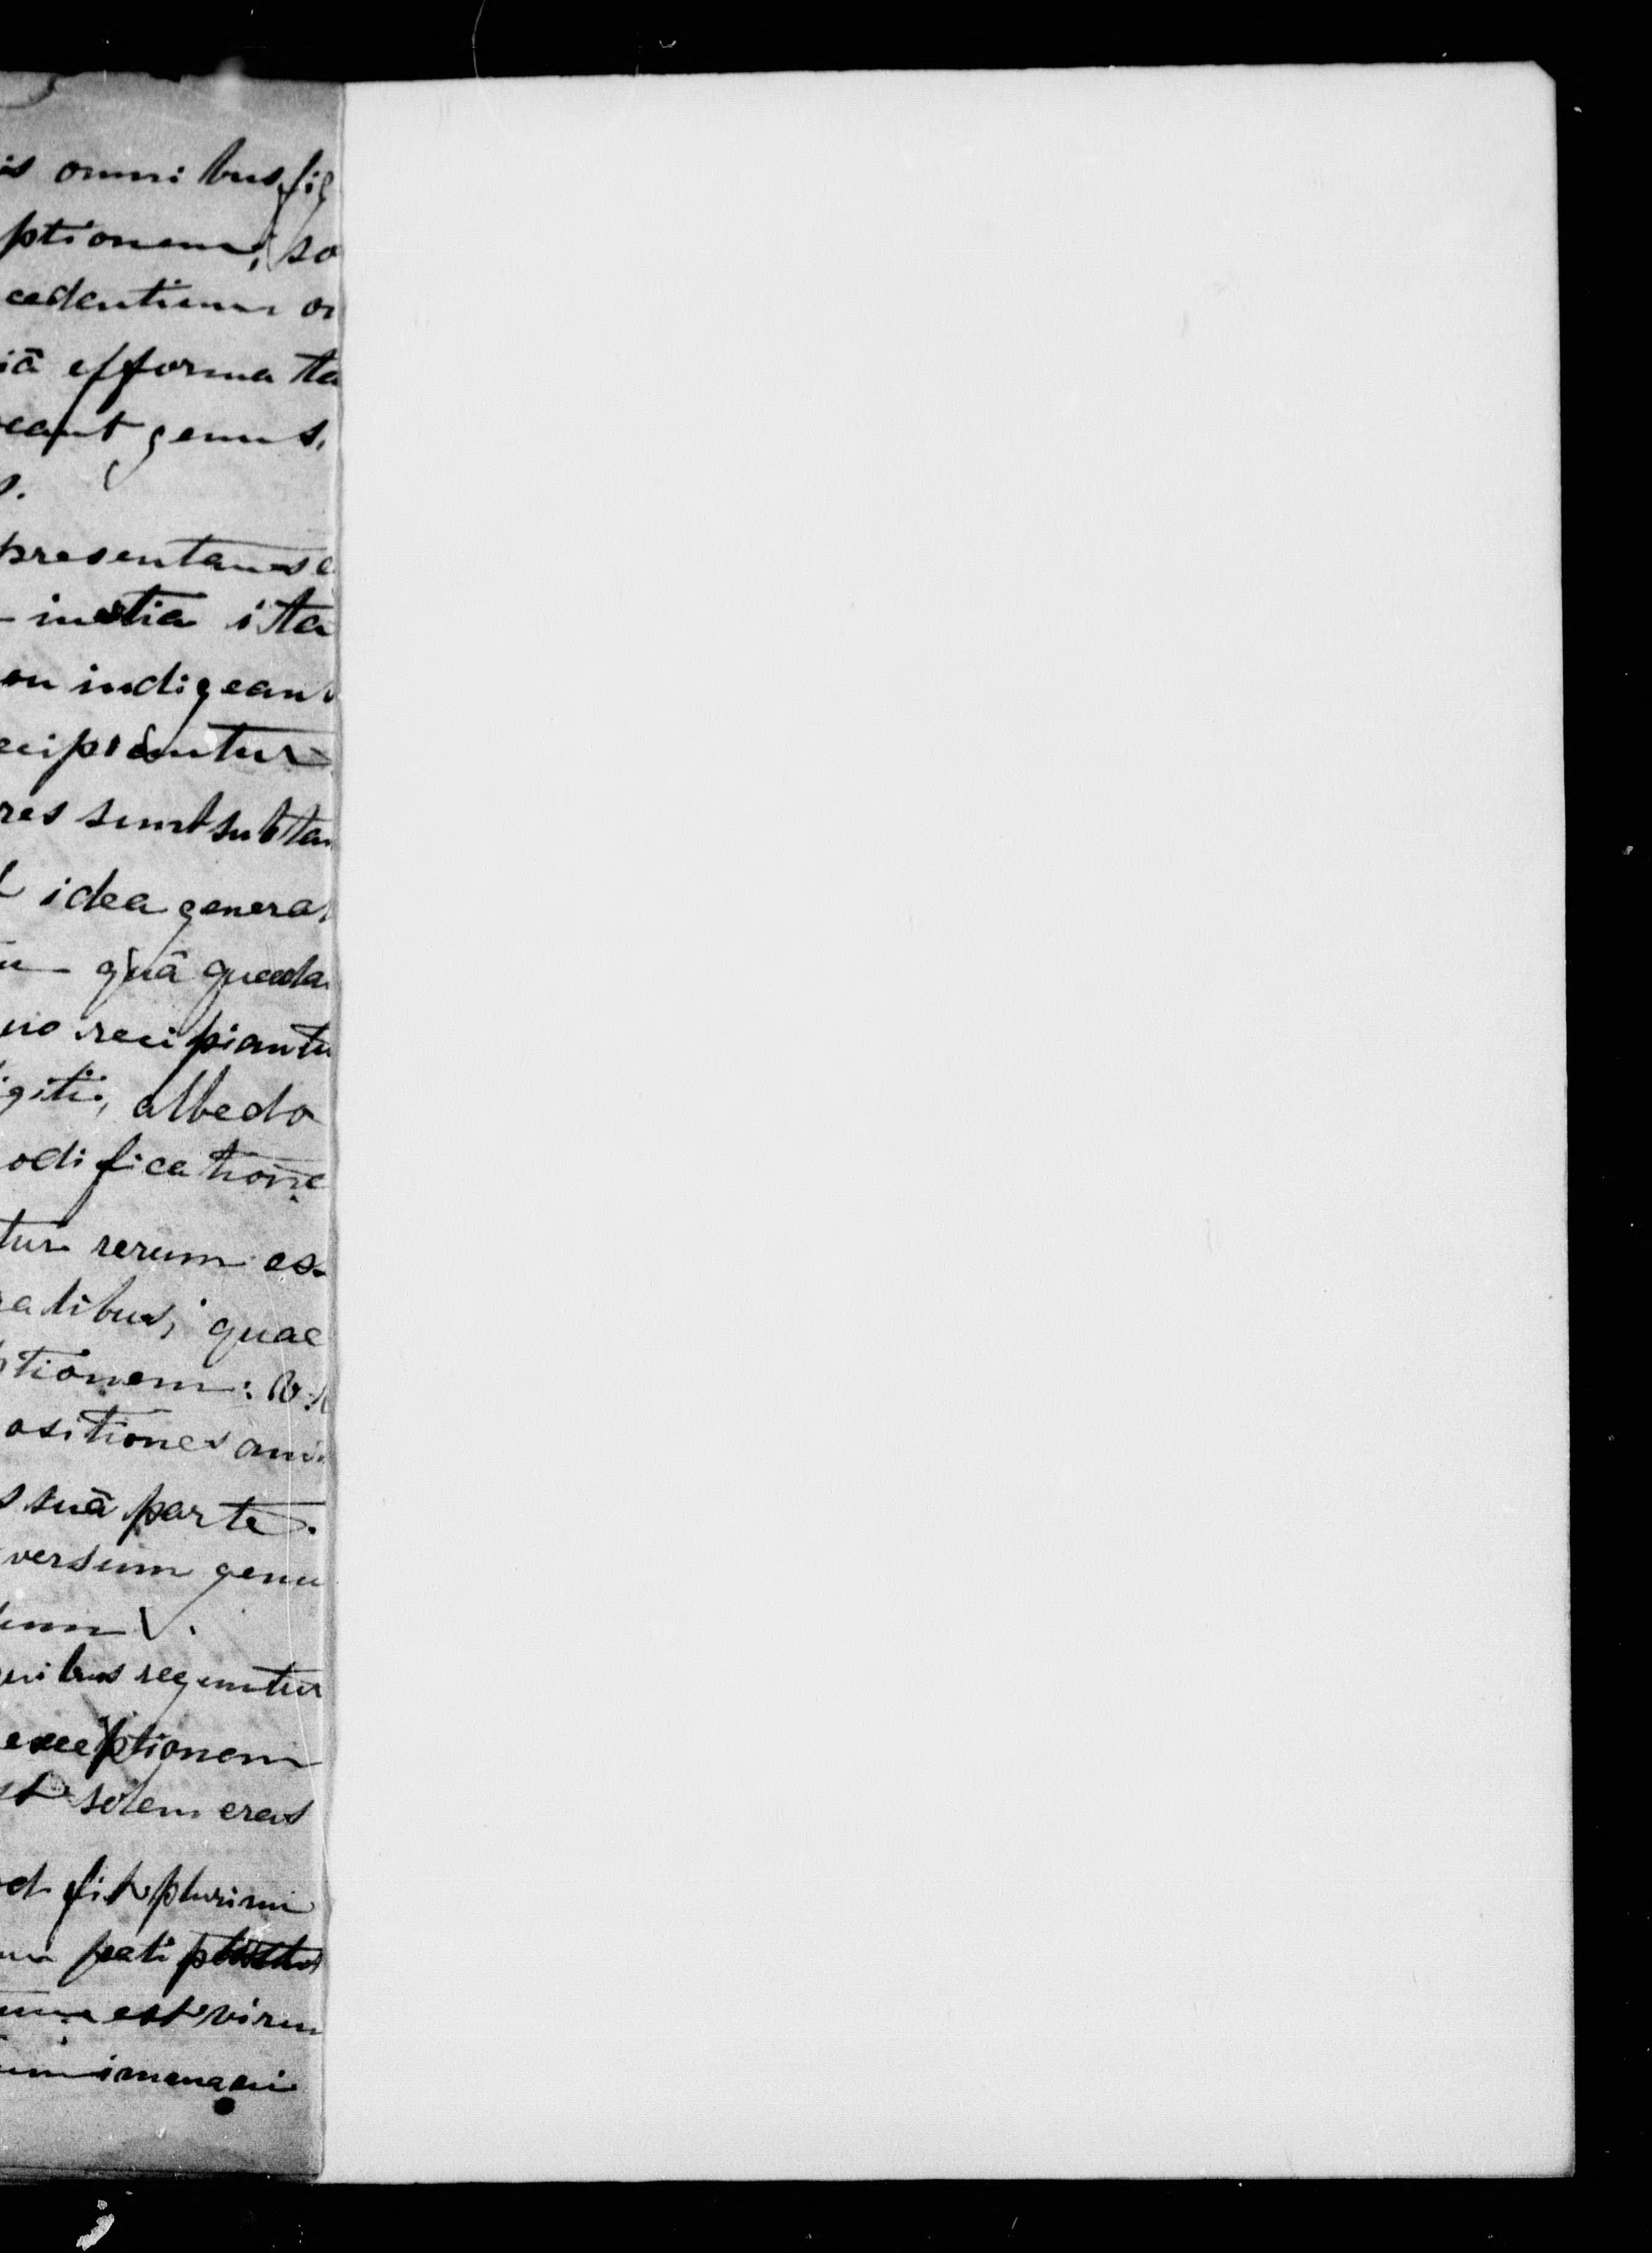 is omnibus fi
ptionem; so
cedentium o
iâ efforma ta
eant genus,
s.
presentans
inertia ita
on indigean
cipiantur
res sunt subtan
idea genera
quâ quaeda
no recipiantu
giti, albedo
odificatione
tur rerum es-
alibus, quae
tionem: v.
ositiones ani
s suâ parte.
versum genu
uibus reguntur
exceptionem
st solem cras
d fit plurimi
pati
est virum